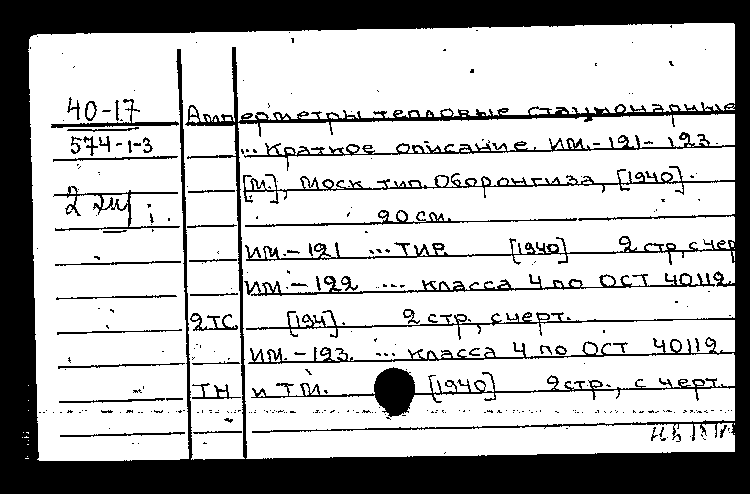 40-17 Амперметры тепловые стационарные
574-1-3 ... Краткое описание. ИМ.-121-123.
[М.], Моск. тип. Оборонгиза, [1940].
2
20 см.
ИМ.-121 ... ТИР. [1940] 2 стр, с чер
ИМ.-122 ... класса 4 по ОСТ 40112.
2ТС [194]. 2 стр., с черт.
ИМ.-123. ... класса 4 по ОСТ 40112.
ТН и ТМ. [1940] 2 стр., с черт.